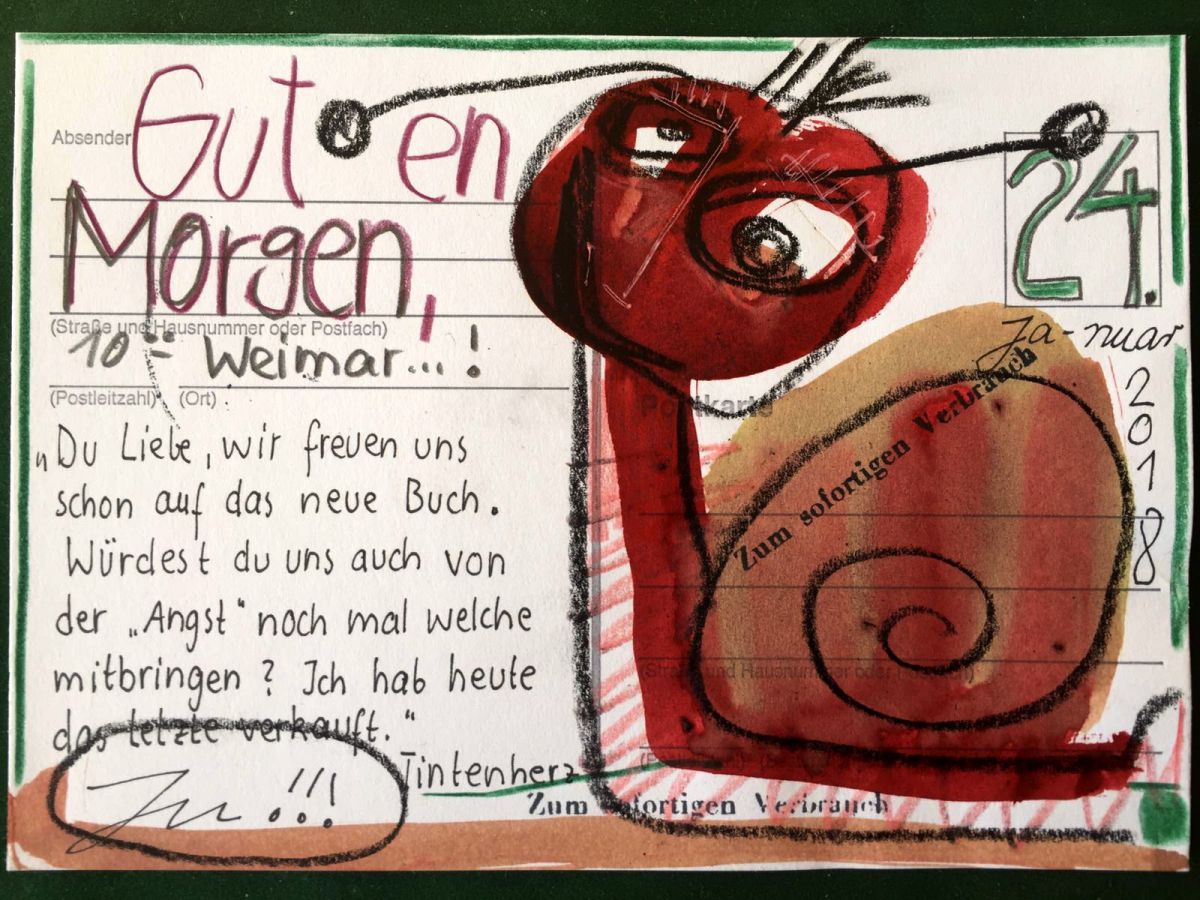 Absender
Guten
Morgen,
(Straße und Hausnummer oder Postfach)
10°° Weimar...!
(Postleitzahl) (Ort)
„Du Liebe, wir freuen uns
schon auf das neue Buch.
Würdest du uns auch von
der „Angst“ noch mal welche
mitbringen? Ich hab heute
das letzte verkauft.“
Tintenherz
!!!
24.
Januar
2018
Postkarte
Zum sofortigen Verbrauch
(Straße und Hausnummer oder Postfach)
Zum sofortigen Verbrauch